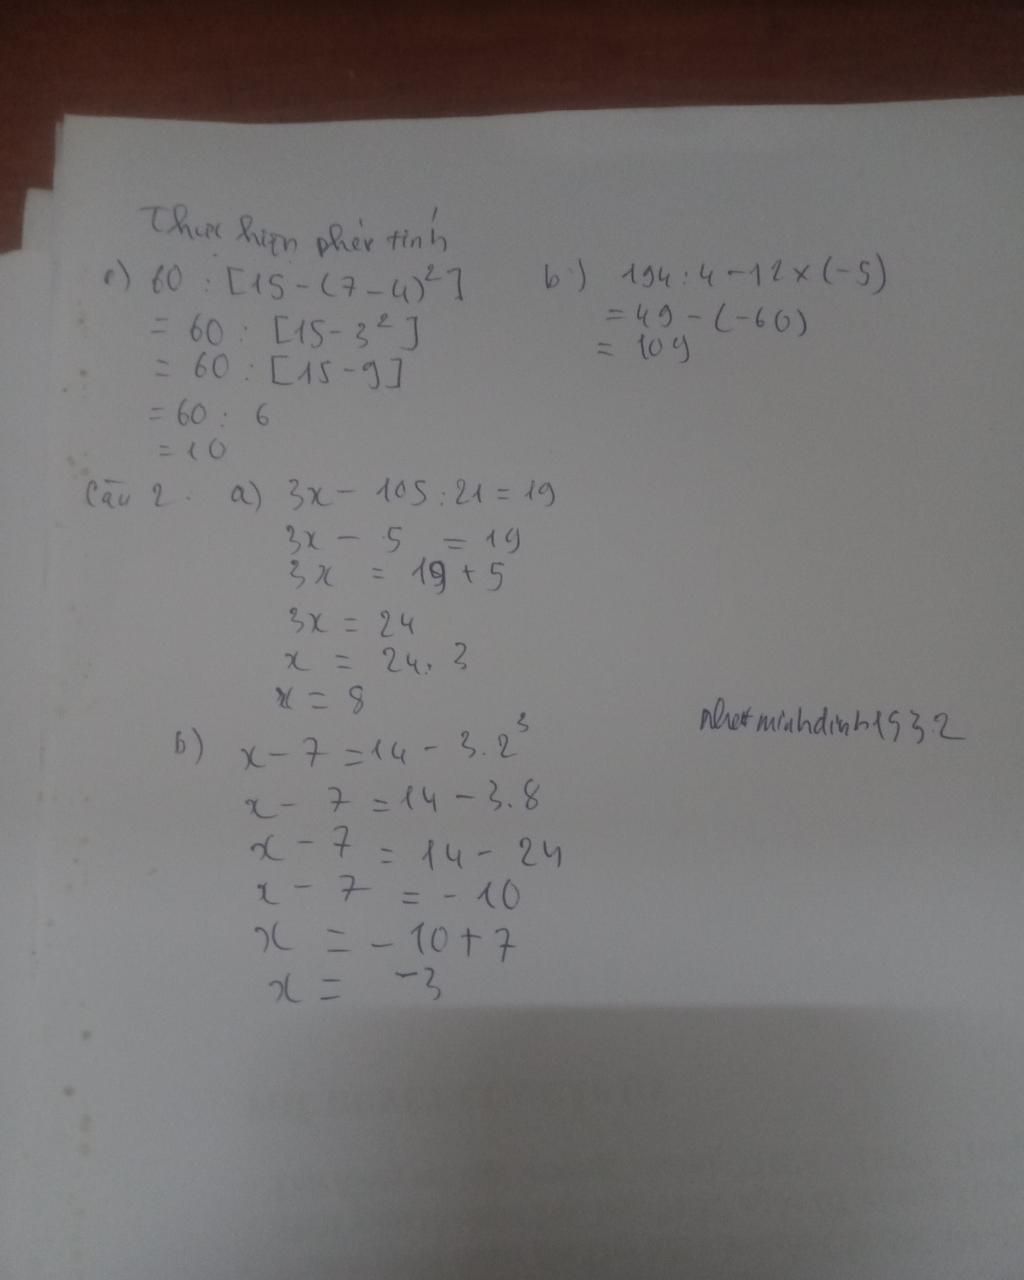 Thực hiện phép tính
a) 60 : [15 - (7 - 4)²]
= 60 : [15 - 3²]
= 60 : [15 - 9]
= 60 : 6
= 10
b) 194 : 4 - 12 x (-5)
= 49 - (-60)
= 109
Câu 2. a) 3x - 105 : 21 = 19
3x - 5 = 19
3x = 19 + 5
3x = 24
x = 24 : 3
x = 8
b) x - 7 = 14 - 3.2³
x - 7 = 14 - 3.8
x - 7 = 14 - 24
x - 7 = -10
x = -10 + 7
x = -3